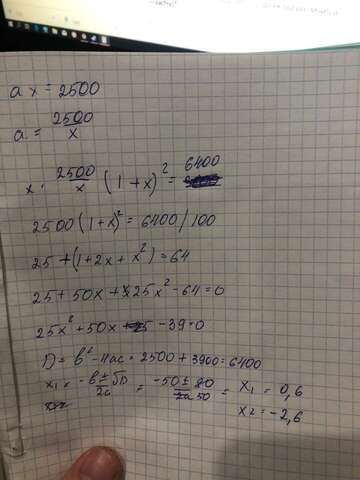 ax = 2500
a = 2500/x
x · 2500/x (1+x)² = 6400
2500 (1+x)² = 6400 / 100
25 + (1+2x + x²) = 64
25 + 50x + 25x² - 64 = 0
25x² + 50x - 39 = 0
D = b² - 4ac = 2500 + 3900 = 6400
x₁ = -b ± √D / 2a = -50 ± 80 / 50 = x₁ = 0,6
x₂ = -2,6